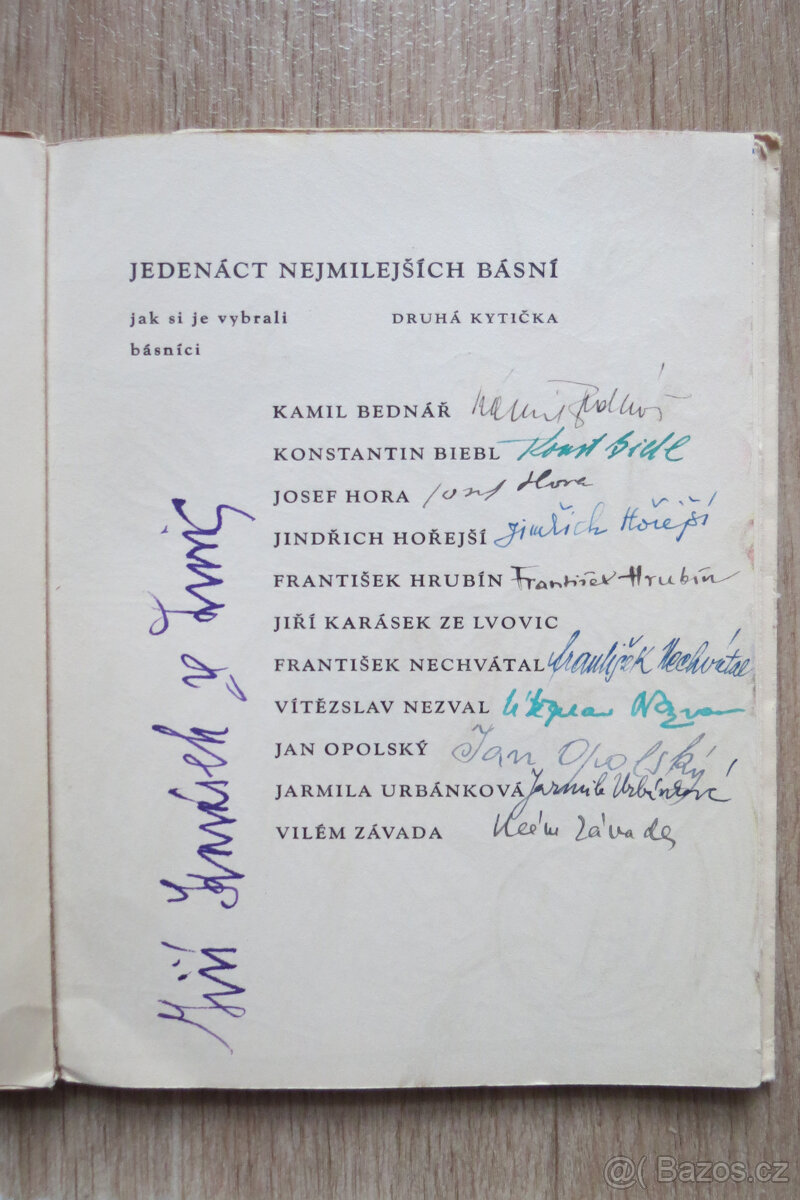 JEDENÁCT NEJMILEJŠÍCH BÁSNÍ
jak si je vybrali DRUHÁ KYTIČKA
básníci
KAMIL BEDNÁŘ Kamil Bednář
KONSTANTIN BIEBL Konst Biebl
JOSEF HORA Josef Hora
JINDŘICH HOŘEJŠÍ Jindřich Hořejší
FRANTIŠEK HRUBÍN František Hrubín
JIŘÍ KARÁSEK ZE LVOVIC
FRANTIŠEK NECHVÁTAL František Nechvátal
VÍTĚZSLAV NEZVAL Vítězslav Nezval
JAN OPOLSKÝ Jan Opolský
JARMILA URBÁNKOVÁ Jarmila Urbánková
VILÉM ZÁVADA Vilém Závada
Jiří Karásek ze Lvovic
@( Bazos.cz